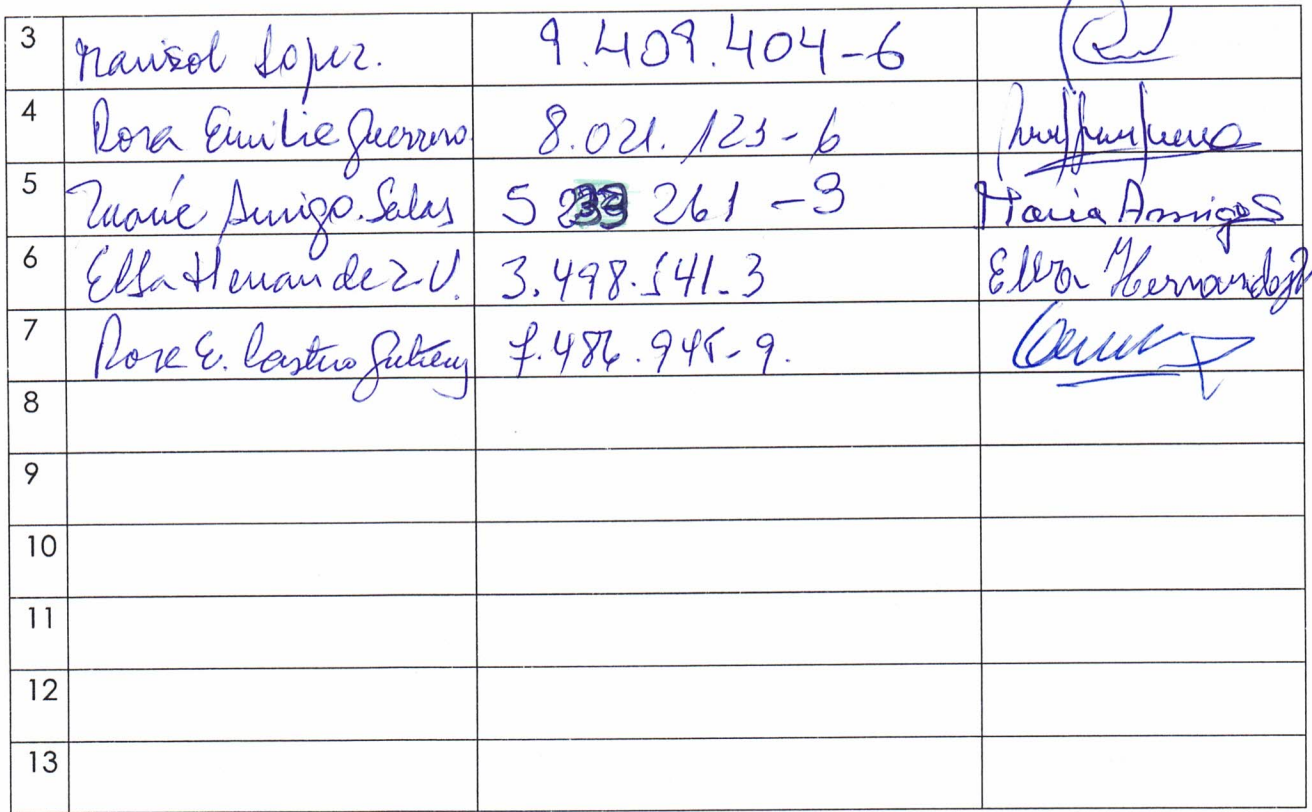 3 Marisol Lopez. 9.409.404-6
4 Rosa Emilia Guerrero 8.021.123-6
5 Maria Amigo. Salas 5 239 261-3 Maria Amigo S
6 Elsa Hernandez.V. 3.498.541-3 Elsa Hernandez
7 Rosa E. Castro Gutierrez 7.486.945-9.
8
9
10
11
12
13